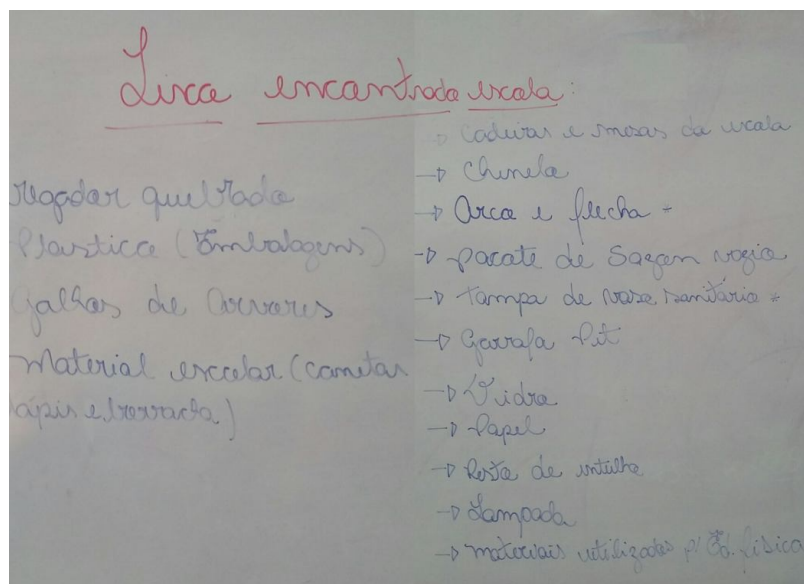 Lixo encontrado escola:
regador quebrado
Plastico (Embalagens)
Galhos de Arvores
Material escolar (canetas
lápis e borracha)
Cadeiras e mesas da escola
→ Chinelo
→ Arco e flecha *
→ Pacote de Sazon vazio
→ tampa de vaso sanitário *
→ Garrafa Pet
→ Vidro
→ Papel
→ Resto de entulho
→ Lampada
→ materiais utilizados p/ Ed. física